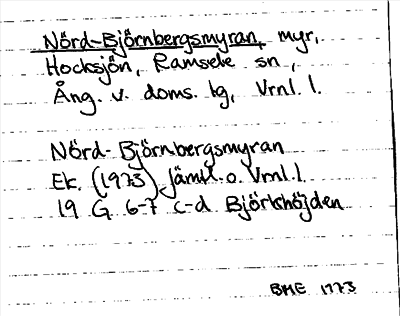 Nörd-Björnbergsmyran, myr,
Hocksjön, Ramsele sn,
Ång. v. doms. tg, Vrnl. l.
Nörd-Björnbergsmyran
Ek. (1973) Jämtl. o. Vrnl. l.
19 G 6-7 c-d Björkhöjden
BHE 1973